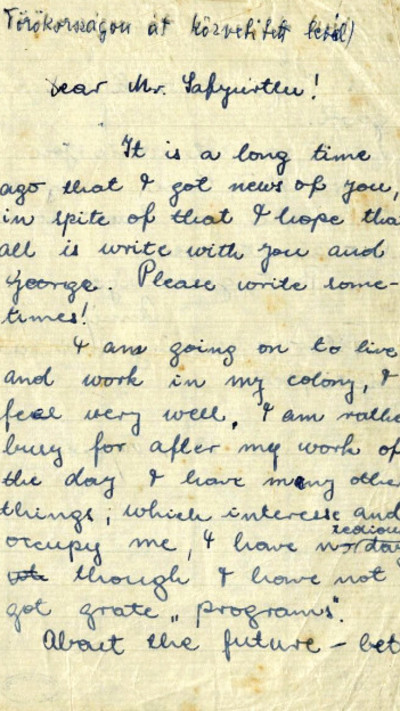 Törökországon át közvetített levél)
Dear Mr. Safyürtlu!
It is a long time
ago, that I got news of you,
in spite of that I hope tha
all is write with you and
George. Please write some-
times!
I am going on to live
and work in my colony, I
feel very well, I am rathe
busy for after my work of
the day I have many other
things; which interesse and
tedious
occupy me, I have no day
though I have not
got grate „programs".
About the future – bet